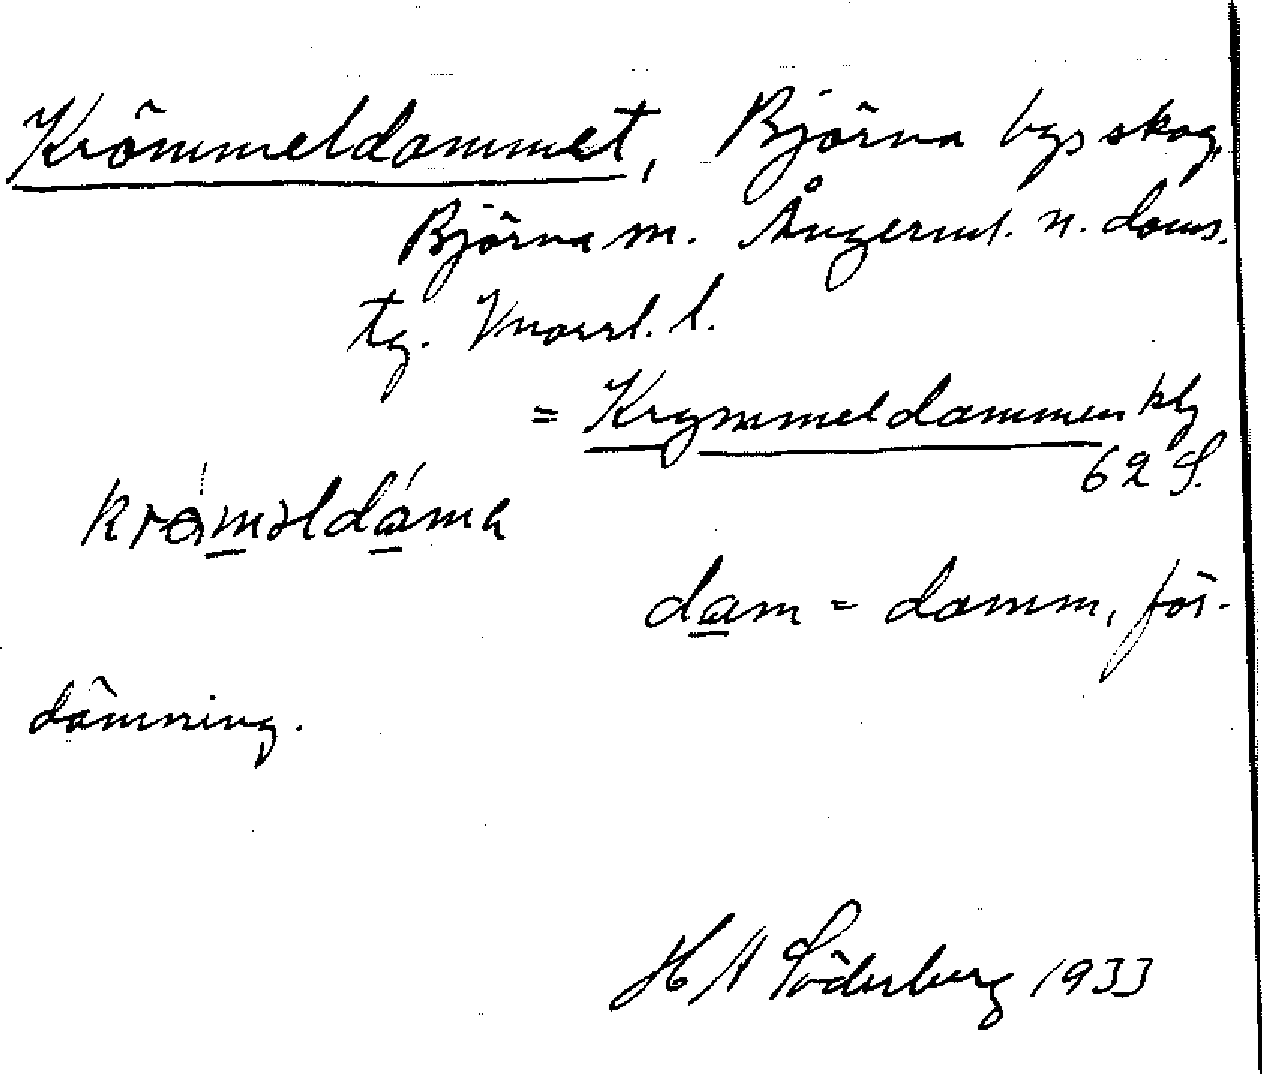 Krömmeldammet, Björna bys skog,
Björna sn. Ångerml. n. doms.
tg. Vnorrl. l.
= Krymmeldammen kbl
62 S.
krö́məldám̀a
dam = damm, för-
dämning.
H A Söderberg 1933